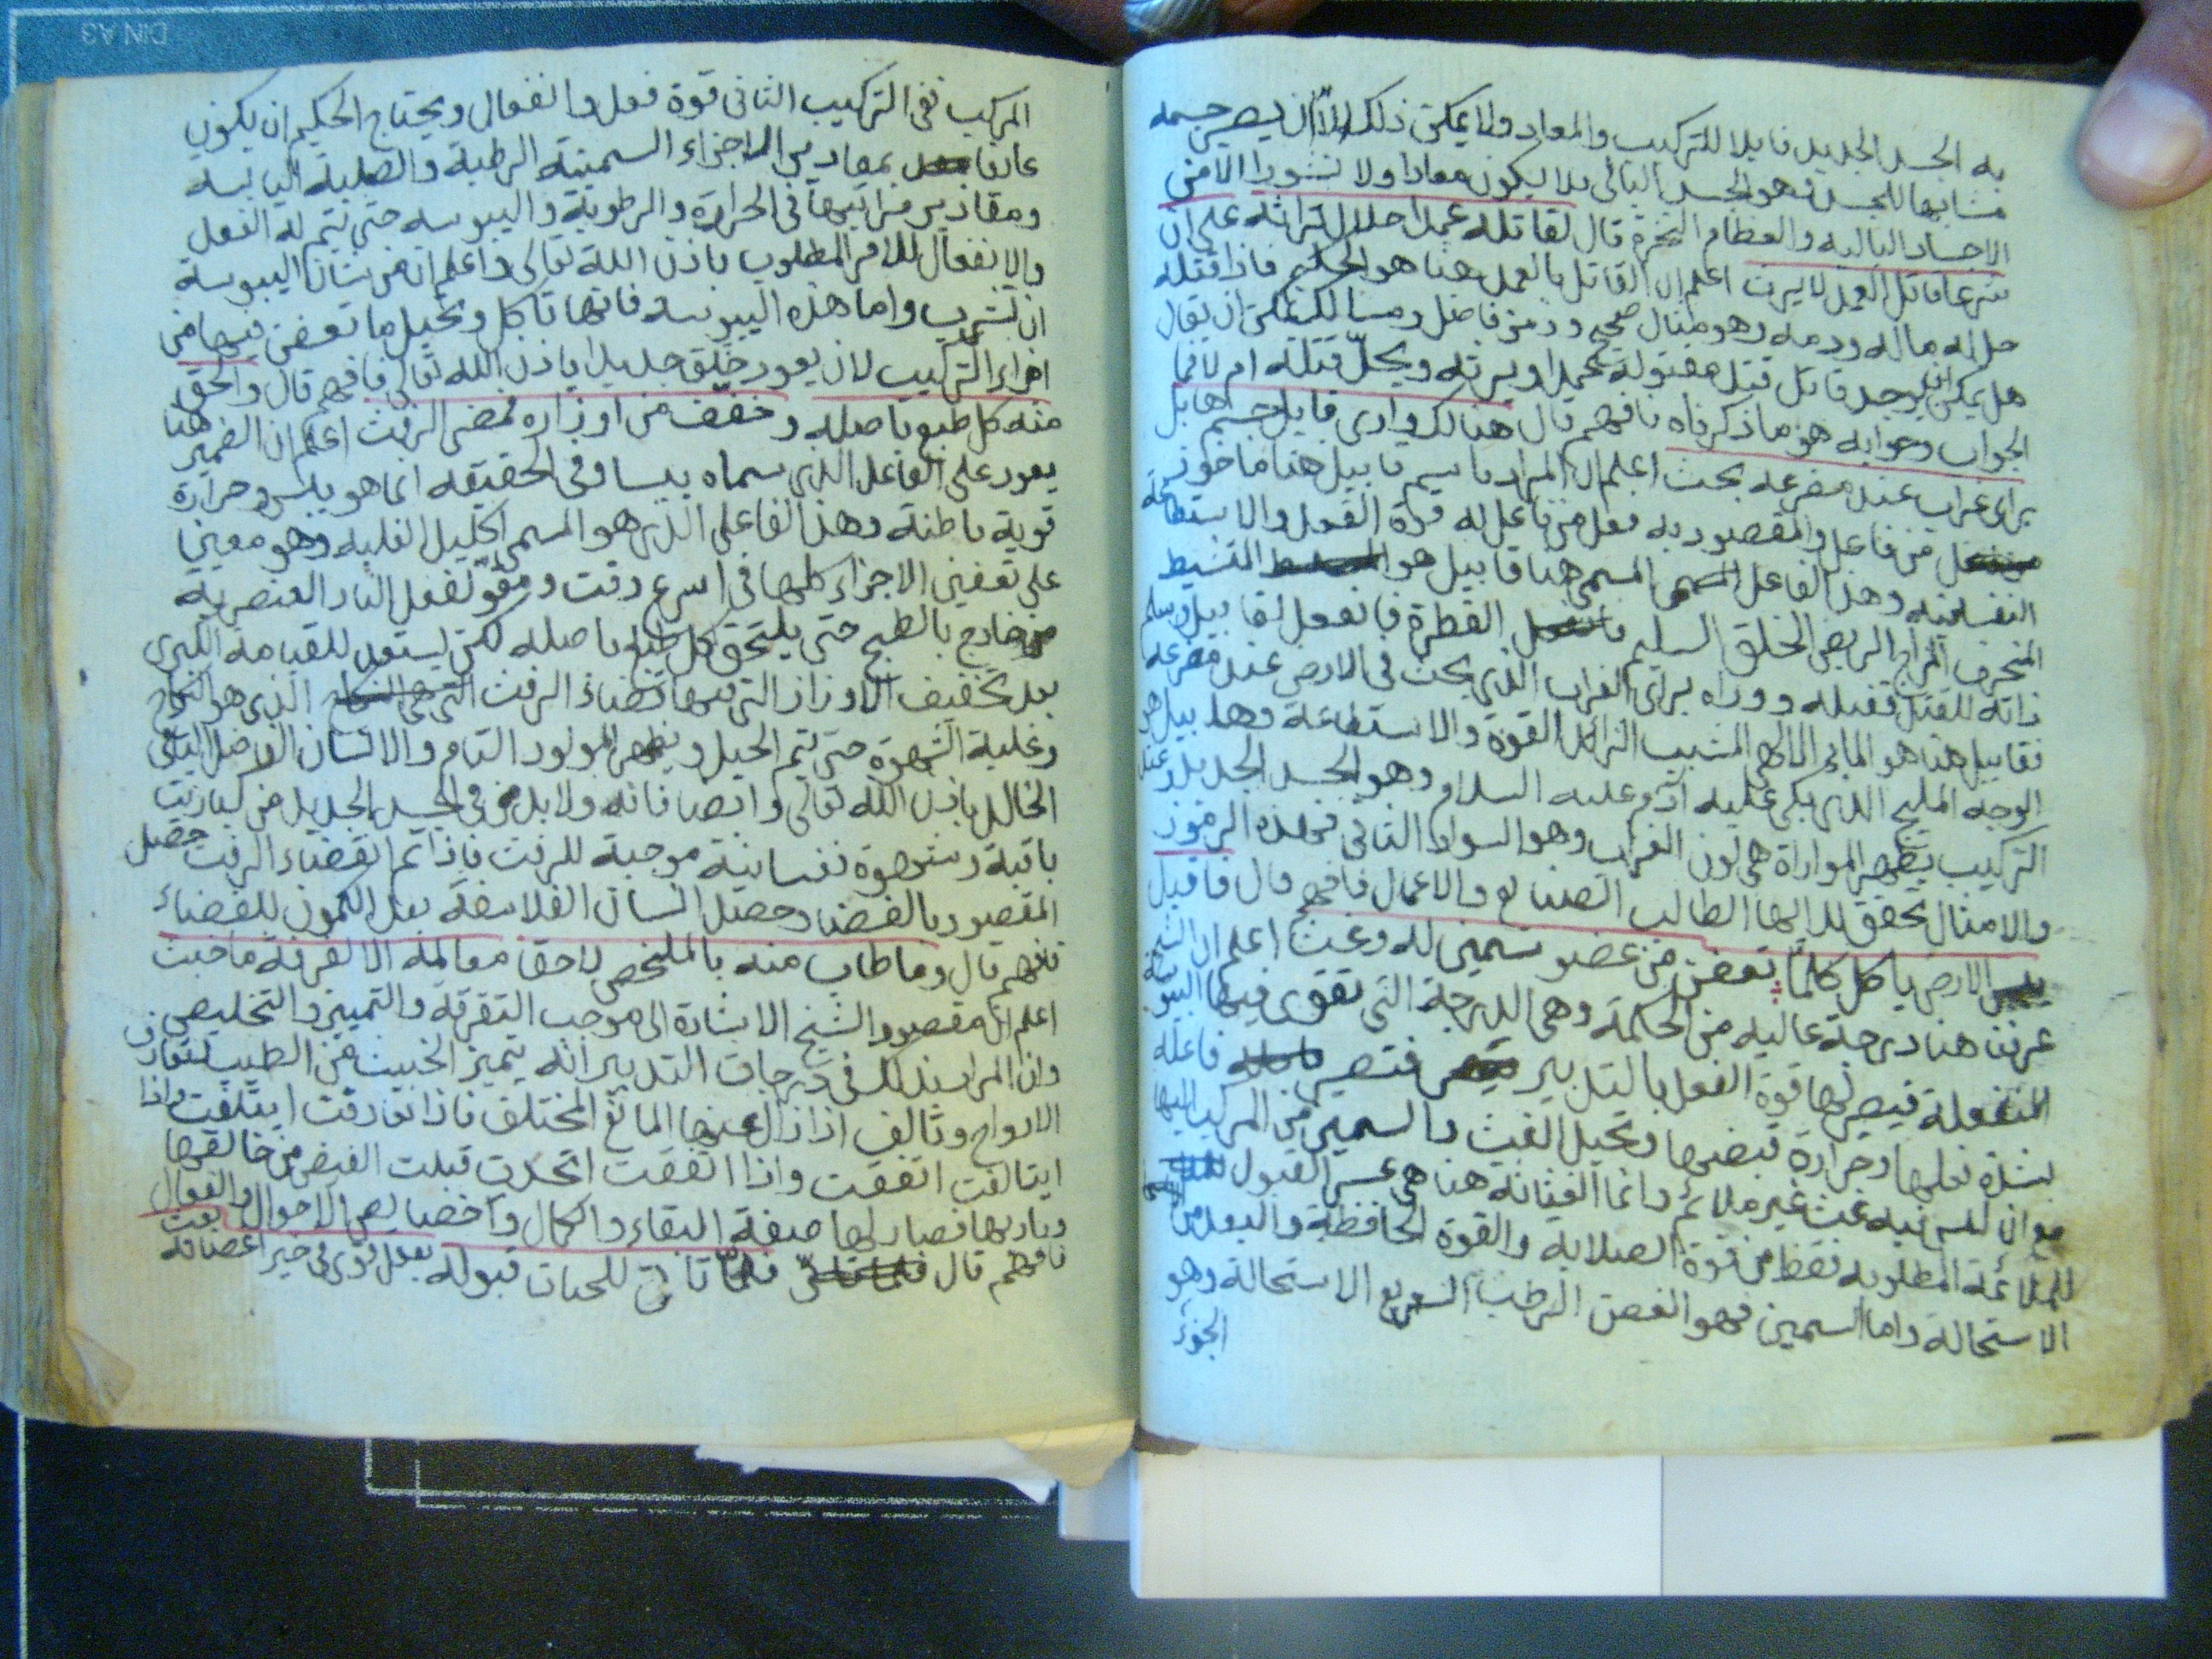 به الجسد الجديد قابلا للتركيب والمعاد ولا يمكن ذلك الا ان يصير جسمه
مشابها للجسد فهو الجسد البالي فلا يكون معادا ولا نشورا الا من
الاجساد الباليه والعظام النخرة قال لقاتله عمدا حلال تراثه على ان
شرعا قاتل العمد لا يرث اعلم ان القاتل بالعمد هنا هو الحكيم فاذا قتله
حل له ماله ودمه وهو مثال صحيح ورمز فاضل ومسالك يمكن ان يقال
هل يمكن ان يوجد قاتل قتل مقتوله عمدا ويرثه ويحل قتله ام لا فما
الجواب وجوابه هو ما ذكرناه فافهم قال هنالك وارى قابيل جسم هابل
براي غراب عند مصرعه بحث اعلم ان المراد باسم قابيل هنا ماخوذ
من فاعل والمقصود به فعل من فاعل له قوة الفعل والاستطاعة
النفسانيه وهذا الفاعل المسمى هنا قابيل هو المتشيط
المنحرف المزاج الردي الخلق السليم الفطرة فانفعل لقابيل وسلم
ذاته للقتل فقتله وواراه براي الغراب الذي بحث في الارض عند مصرعه
فقابيل هنا هو الماء الالهي المشبب الزائل القوة والاستطاعة وهابيل هو
الوجه المليح الذي بكى عليه آدم عليه السلام وهو الجسد الجديد وعند
التركيب تظهر المواراة هي لون الغراب وهو السواد الثاني فبهذه الرموز
والامثال تحقق لك ايها الطالب الصنايع والاعمال فافهم قال فاقبل
يبس الارض ياكل كلما تعفن من عضو سمين له وغث اعلم ان الشيخ
عرفنا هنا درجة عاليه من الحكمة وهي الدرجة التي تقوى فيها اليبوسة
المنفعلة فيصير لها قوة الفعل بالتدبير فتصير فاعله
بشدة فعلها وحرارة قبضها وتحيل الغث والسمين من المركب اليها
مع ان ليس فيه غث غير ملائم وانما الغثاثة هنا هي عسر القبول
للملائمة المطلوبه فقط من قوة الصلابة والقوة الحافظة والبعد من
الاستحالة واما السمين فهو الغصن الرطب السريع الاستحالة وهو
الجزء
المركب ففي التركيب الثاني قوة فعل وانفعال ويحتاج الحكيم ان يكون
عارفا بمقادير الاجزاء السمينة الرطبة والصلبة اليابسه
ومقادير مراتبها في الحرارة والرطوبة واليبوسه حتى يتم له الفعل
والانفعال للامر المطلوب باذن الله تعالى واعلم ان من شان اليبوسة
ان تشرب واما هذه اليبوسه فانها تاكل وتحيل ما تعفن فيها من
اجزاء التركيب لان يعود خلق جديدا باذن الله تعالى فافهم قال والحق
منه كل طبع باصله وخفف من اوزاره فمضى الرفث اعلم ان الضمير هنا
يعود على الفاعل الذي سماه يبسا وفي الحقيقه انما هو يبس وحرارة
قوية باطنة وهذا الفاعل الذي هو المسمى اكليل الغلبه وهو معينا
على تعفين الاجزاء كلها في اسرع وقت ومقو لفعل النار العنصرية
من خارج بالطبخ حتى يلتحق كل طبع باصله لكي يستعد للقيامة الكبرى
بعد تخفيف الاوزار التي فيها قضاء الرفث الذي هو النكاح
وغلبة الشهوة حتى يتم الحبل ويظهر المولود التام والانسان الفاضل الباقي
الخالد باذن الله تعالى وايضا فانه ولا بد من في الجسد الجديد من كباريت
باقية وشهوة نفسانية موجبة للرفث فاذا تم انقضاء الرفث حصل
المقصود بالقضا وحصل انسان الفلاسفة بعد الكمون للقضاء
فافهم قال وما طاب منه بالملخص لاحقا معالمه الا لفرقة ما خبث
اعلم ان مقصود الشيخ الاشارة الى موجب التفرقة والتمييز والتخليص
وان المراد بذلك في درجات التدبير انه يتميز الخبيث من الطيب لتعارف
الارواح وتالف اذا زال عنها المانع المختلف فاذا تعارفت ايتلفت واذا
ايتالفت اتفقت واذا اتفقت اتحدت قبلت الفيض من خالقها
وباريها فصار لها صفة البقاء والكمال واخصايص الاحوال والفعال
فافهم قال فلما تاتي للحياة قبوله بعد قوى في خير اعضائه بعث